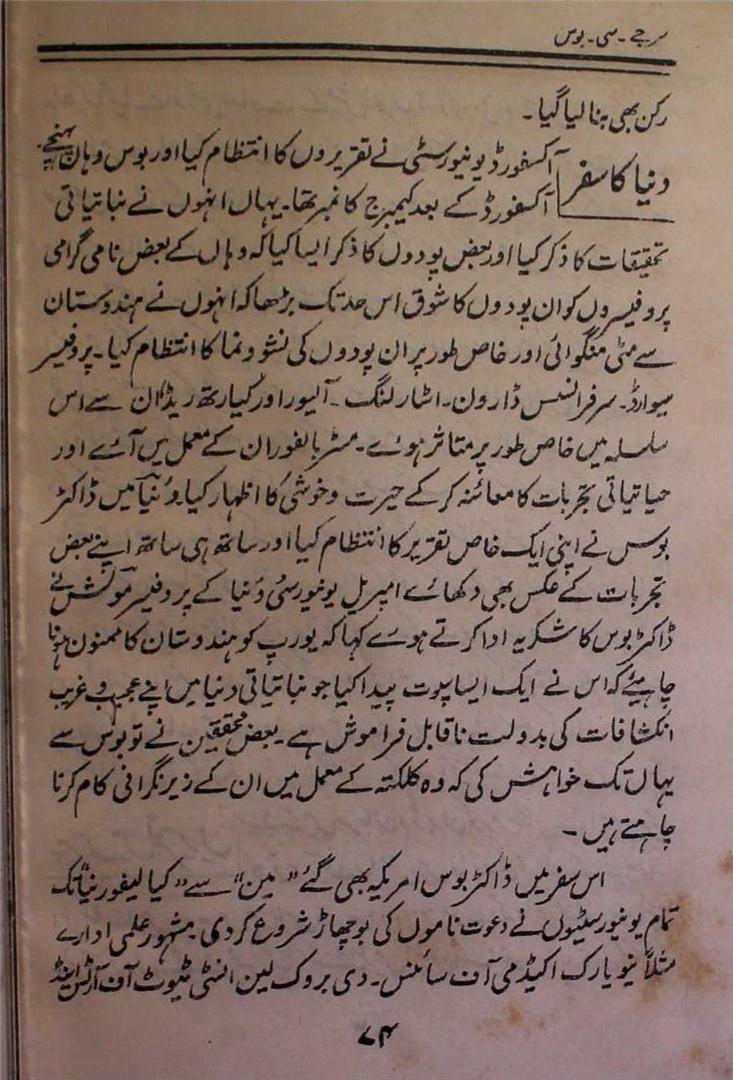 سر جے۔سی۔بوس
رکن بھی بنا لیا گیا۔
دنیا کا سفر آکسفورڈ یونیورسٹی نے تقریروں کا انتظام کیا اور بوس وہاں پہنچے۔
آکسفورڈ کے بعد کیمبرج کا نمبر تھا۔ یہاں انہوں نے نباتیاتی
تحقیقات کا ذکر کیا اور بعض پودوں کا ذکر ایسا کیا کہ وہاں کے بعض نامی گرامی
پروفیسروں کو ان پودوں کا شوق اس حد تک بڑھا کہ انہوں نے ہندوستان
سے مٹی منگوائی اور خاص طور پر ان پودوں کی نشو و نما کا انتظام کیا۔ پروفیسر
سیوارڈ۔ سر فرانسس ڈارون۔ اسٹارلنگ۔ آلیور اور کیارتھ ریڈ ان سے اس
سلسلہ میں خاص طور پر متاثر ہوئے۔ مسٹر بالفور ان کے معمل میں آئے اور
حیاتیاتی تجربات کا معائنہ کر کے حیرت و خوشی کا اظہار کیا۔ وئینا میں ڈاکٹر
بوس نے اپنی ایک خاص تقریر کا انتظام کیا اور ساتھ ہی ساتھ اپنے بعض
تجربات کے عکس بھی دکھائے امپریل یونیورسٹی وئینا کے پروفیسر مولش نے
ڈاکٹر بوس کا شکریہ ادا کرتے ہوئے کہا کہ یورپ کو ہندوستان کا ممنون ہونا
چاہیئے کہ اس نے ایک ایسا سپوت پیدا کیا جو نباتیاتی دنیا میں اپنے عجیب و غریب
انکشافات کی بدولت ناقابل فراموش ہے۔ بعض محققین نے تو بوس سے
یہاں تک خواہش کی کہ وہ کلکتہ کے معمل میں ان کے زیر نگرانی کام کرنا
چاہتے ہیں۔
اس سفر میں ڈاکٹر بوس امریکہ بھی گئے "مین" سے "کیالیفورنیا" تک
تمام یونیورسٹیوں نے دعوت ناموں کی بوچھاڑ شروع کر دی۔ مشہور علمی ادارے
مثلاً نیویارک اکیڈمی آف سائنس۔ دی بروک لین انسٹی ٹیوٹ آف آرٹس اینڈ
۷۴